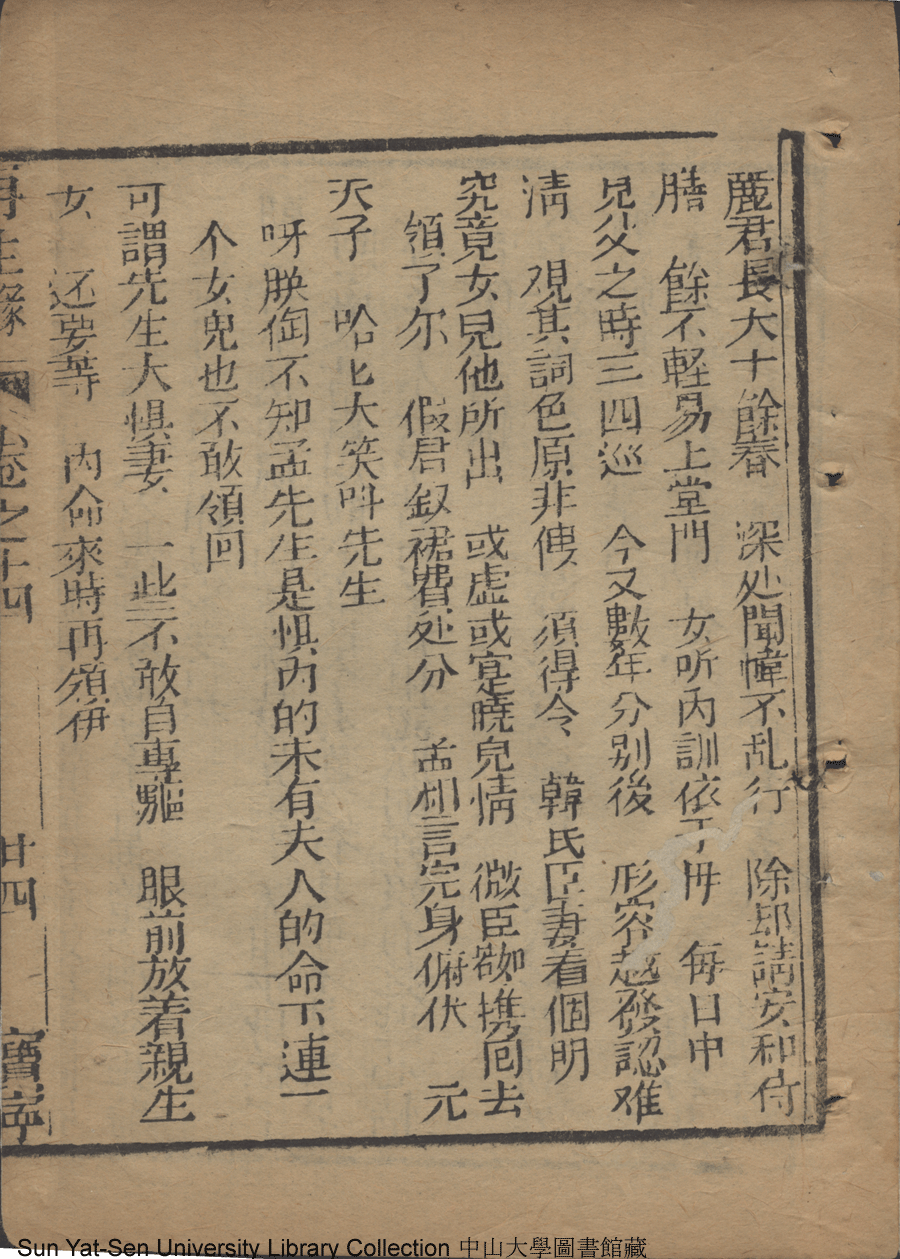 麗君長大十餘春　深处閨幃不乱行　除却請安和侍
膳　餘不軽易上堂門　女听内訓依于母　每日中
見父之時三四巡　今又數年分别後　形容越發認难
清　覌其詞色原非儍　須得令　韓氏臣妻看個明
究竟女兒他所出　或虚或寔曉兒情　微臣欲携囘去
領了尔　假君釵裙費处分　孟相言完身俯伏　元
天子　哈匕大笑呌先生
呀朕倒不知孟先生是惧内的未有夫人的命下連一
个女兒也不敢領回
可謂先生大惧妻　一些不敢自專驅　眼前放着親生
女　还要等　内命來時再領伊
再生緣　卷之十四　廿四　寶寧
Sun Yat-Sen University Library Collection 中山大學圖書館藏